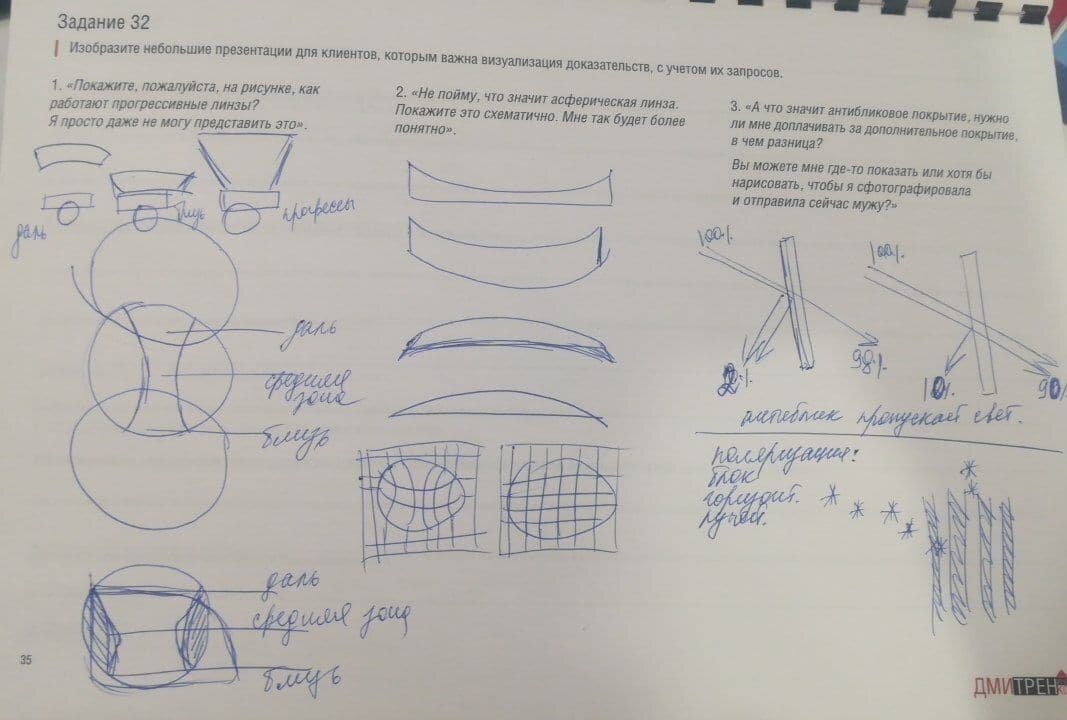 Задание 32
Изобразите небольшие презентации для клиентов, которым важна визуализация доказательств, с учетом их запросов.
1. «Покажите, пожалуйста, на рисунке, как
работают прогрессивные линзы?
Я просто даже не могу представить это».
даль
близь
прогрессы
даль
средняя
зона
близь
даль
средняя зона
близь
2. «Не пойму, что значит асферическая линза.
Покажите это схематично. Мне так будет более
понятно».
3. «А что значит антибликовое покрытие, нужно
ли мне доплачивать за дополнительное покрытие,
в чем разница?
Вы можете мне где-то показать или хотя бы
нарисовать, чтобы я сфотографировала
и отправила сейчас мужу?»
100%
100%
2%
98%
10%
90%
антиблик пропускает свет.
поляризация:
блок
горизонт.
лучей.
35
ДМИТРЕН